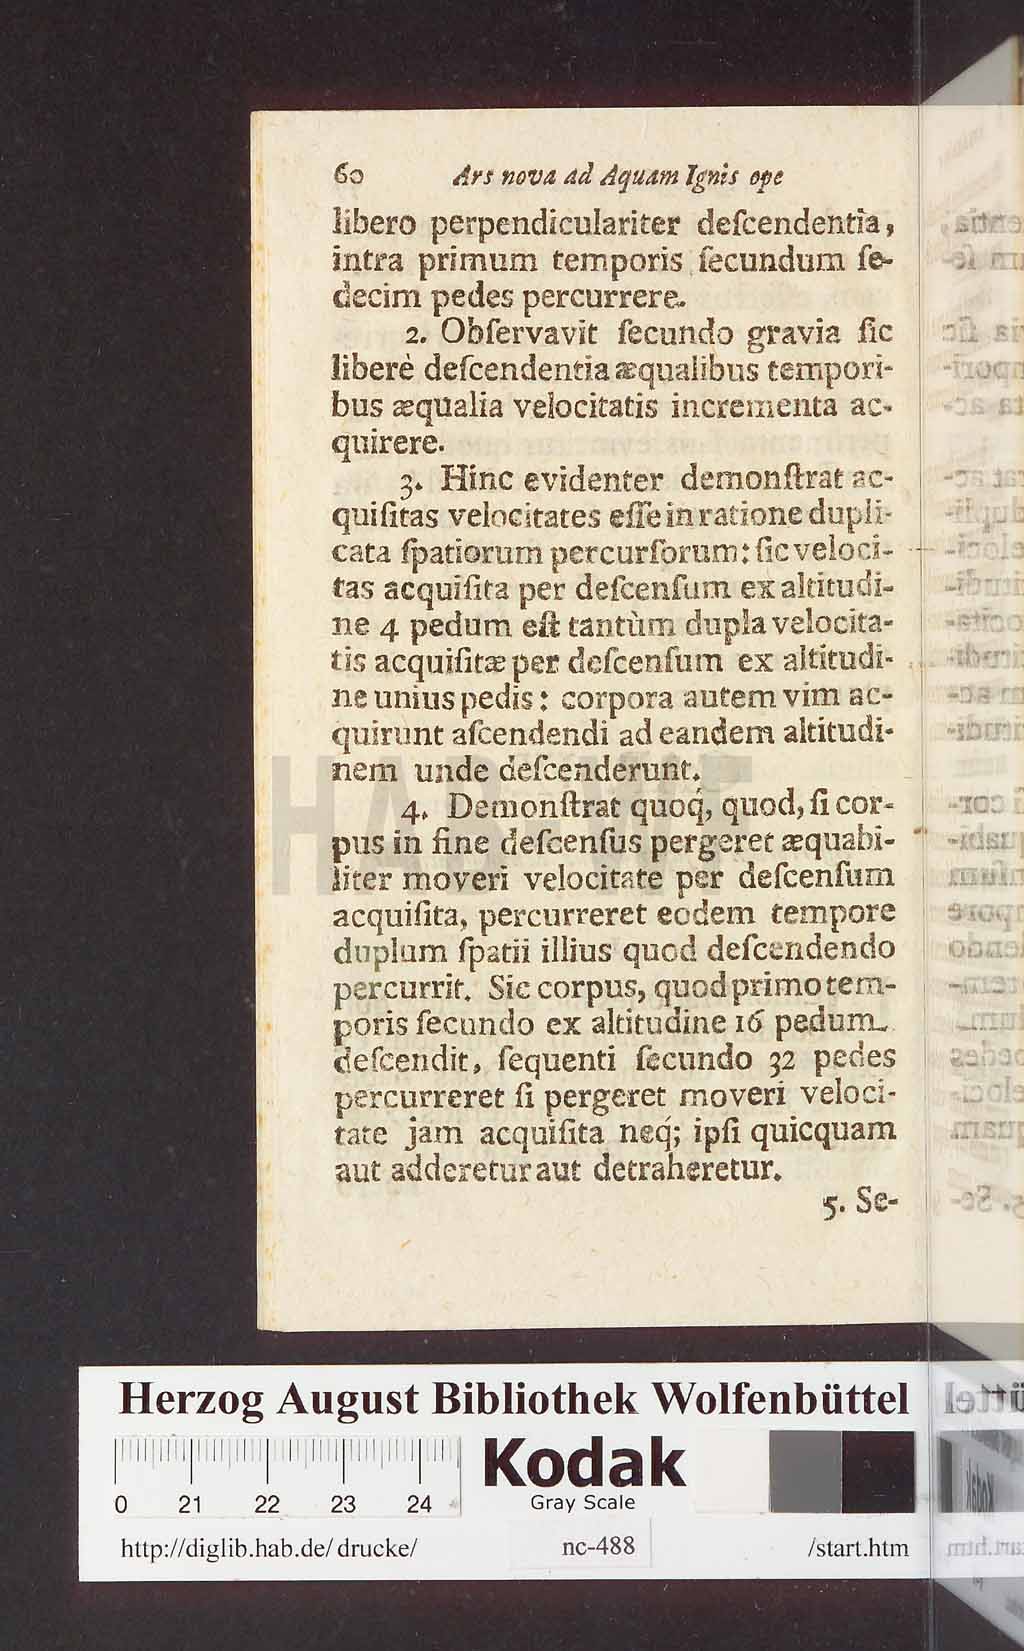 60 Ars nova ad Aquam Ignis ope
libero perpendiculariter deſcendentia,
intra primum temporis ſecundum ſe-
decim pedes percurrere.
2. Obſervavit ſecundo gravia ſic
liberè deſcendentia æqualibus tempori-
bus æqualia velocitatis incrementa ac-
quirere.
3. Hinc evidenter demonſtrat ac-
quiſitas velocitates eſſe in ratione dupli-
cata ſpatiorum percurſorum: ſic veloci-
tas acquiſita per deſcenſum ex altitudi-
ne 4 pedum eſt tantùm dupla velocita-
tis acquiſitæ per deſcenſum ex altitudi-
ne unius pedis: corpora autem vim ac-
quirunt aſcendendi ad eandem altitudi-
nem unde deſcenderunt.
4. Demonſtrat quoq́, quod, ſi cor-
pus in fine deſcenſus pergeret æquabi-
liter moveri velocitate per deſcenſum
acquiſita, percurreret eodem tempore
duplum ſpatii illius quod deſcendendo
percurrit. Sic corpus, quod primo tem-
poris ſecundo ex altitudine 16 pedum
deſcendit, ſequenti ſecundo 32 pedes
percurreret ſi pergeret moveri veloci-
tate jam acquiſita neq́; ipſi quicquam
aut adderetur aut detraheretur.
5. Se-
Herzog August Bibliothek Wolfenbüttel
0 21 22 23 24
Kodak
Gray Scale
http://diglib.hab.de/drucke/ nc-488 /start.htm